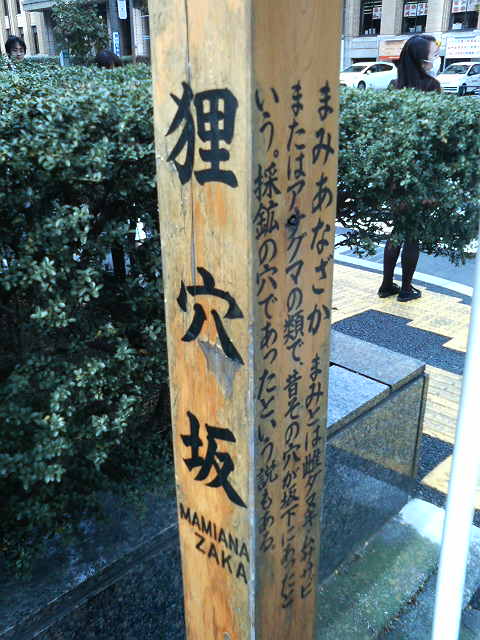 狸穴坂
MAMIANA
ZAKA
まみあなざか まみとは雌ダヌキ・ムササビ
またはアナグマの類で、昔その穴が坂下にあったと
いう。採鉱の穴であったという説もある。